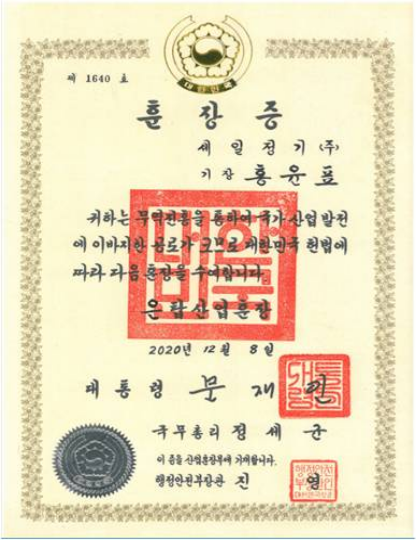 대한민국
제 1640 호
훈장증
세일정기(주)
기장 홍윤표
귀하는 무역진흥을 통하여 국가 산업발전
에 이바지한 공로가 크므로 대한민국 헌법에
따라 다음 훈장을 수여합니다
은탑산업훈장
2020년 12월 8일
대통령 문재인
국무총리 정세균
이 증을 산업훈장부에 기재합니다.
행정안전부장관 진영
행정안전
부장관인